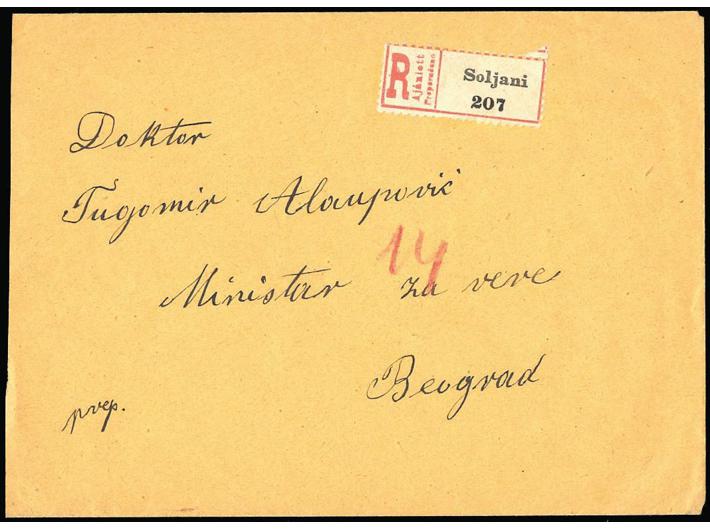 R
Ajánlott
Preporučeno
Soljani
207
Doktor
Tugomir Alaupović
14
Ministar za vere
Beograd
prep.